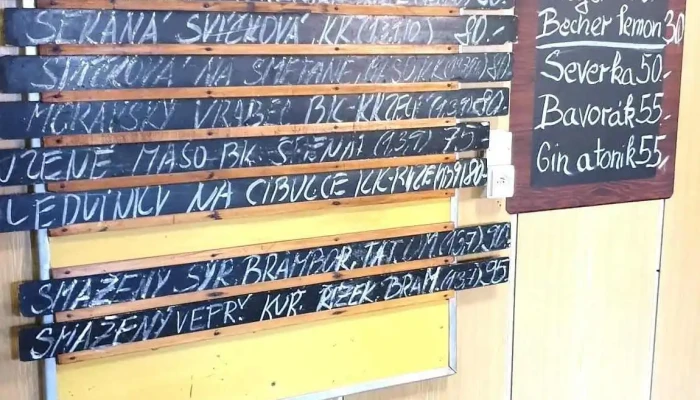 SEKANÁ SVÍČKOVÁ, KK (1,3,7,10) 80.-
SVÍČKOVÁ NA SMETANĚ, 80
MORAVSKÝ VRABEC BK-KK 80.-
UZENÉ MASO-BK. ŠPENÁT (1,3,9) 75.-
LEDVINKY NA CIBULCE KK-RÝŽE (1,3,9) 80.-
SMAŽENÝ SÝR. BRAMBOR. TAT. OM (1,3,7) 90.
SMAŽENÝ VEPŘ. KUŘ. ŘÍZEK. BRAM. (1,3,7) 95
Becher lemon 30
Severka 50.-
Bavorák 55.-
Gin a tonik 55,-